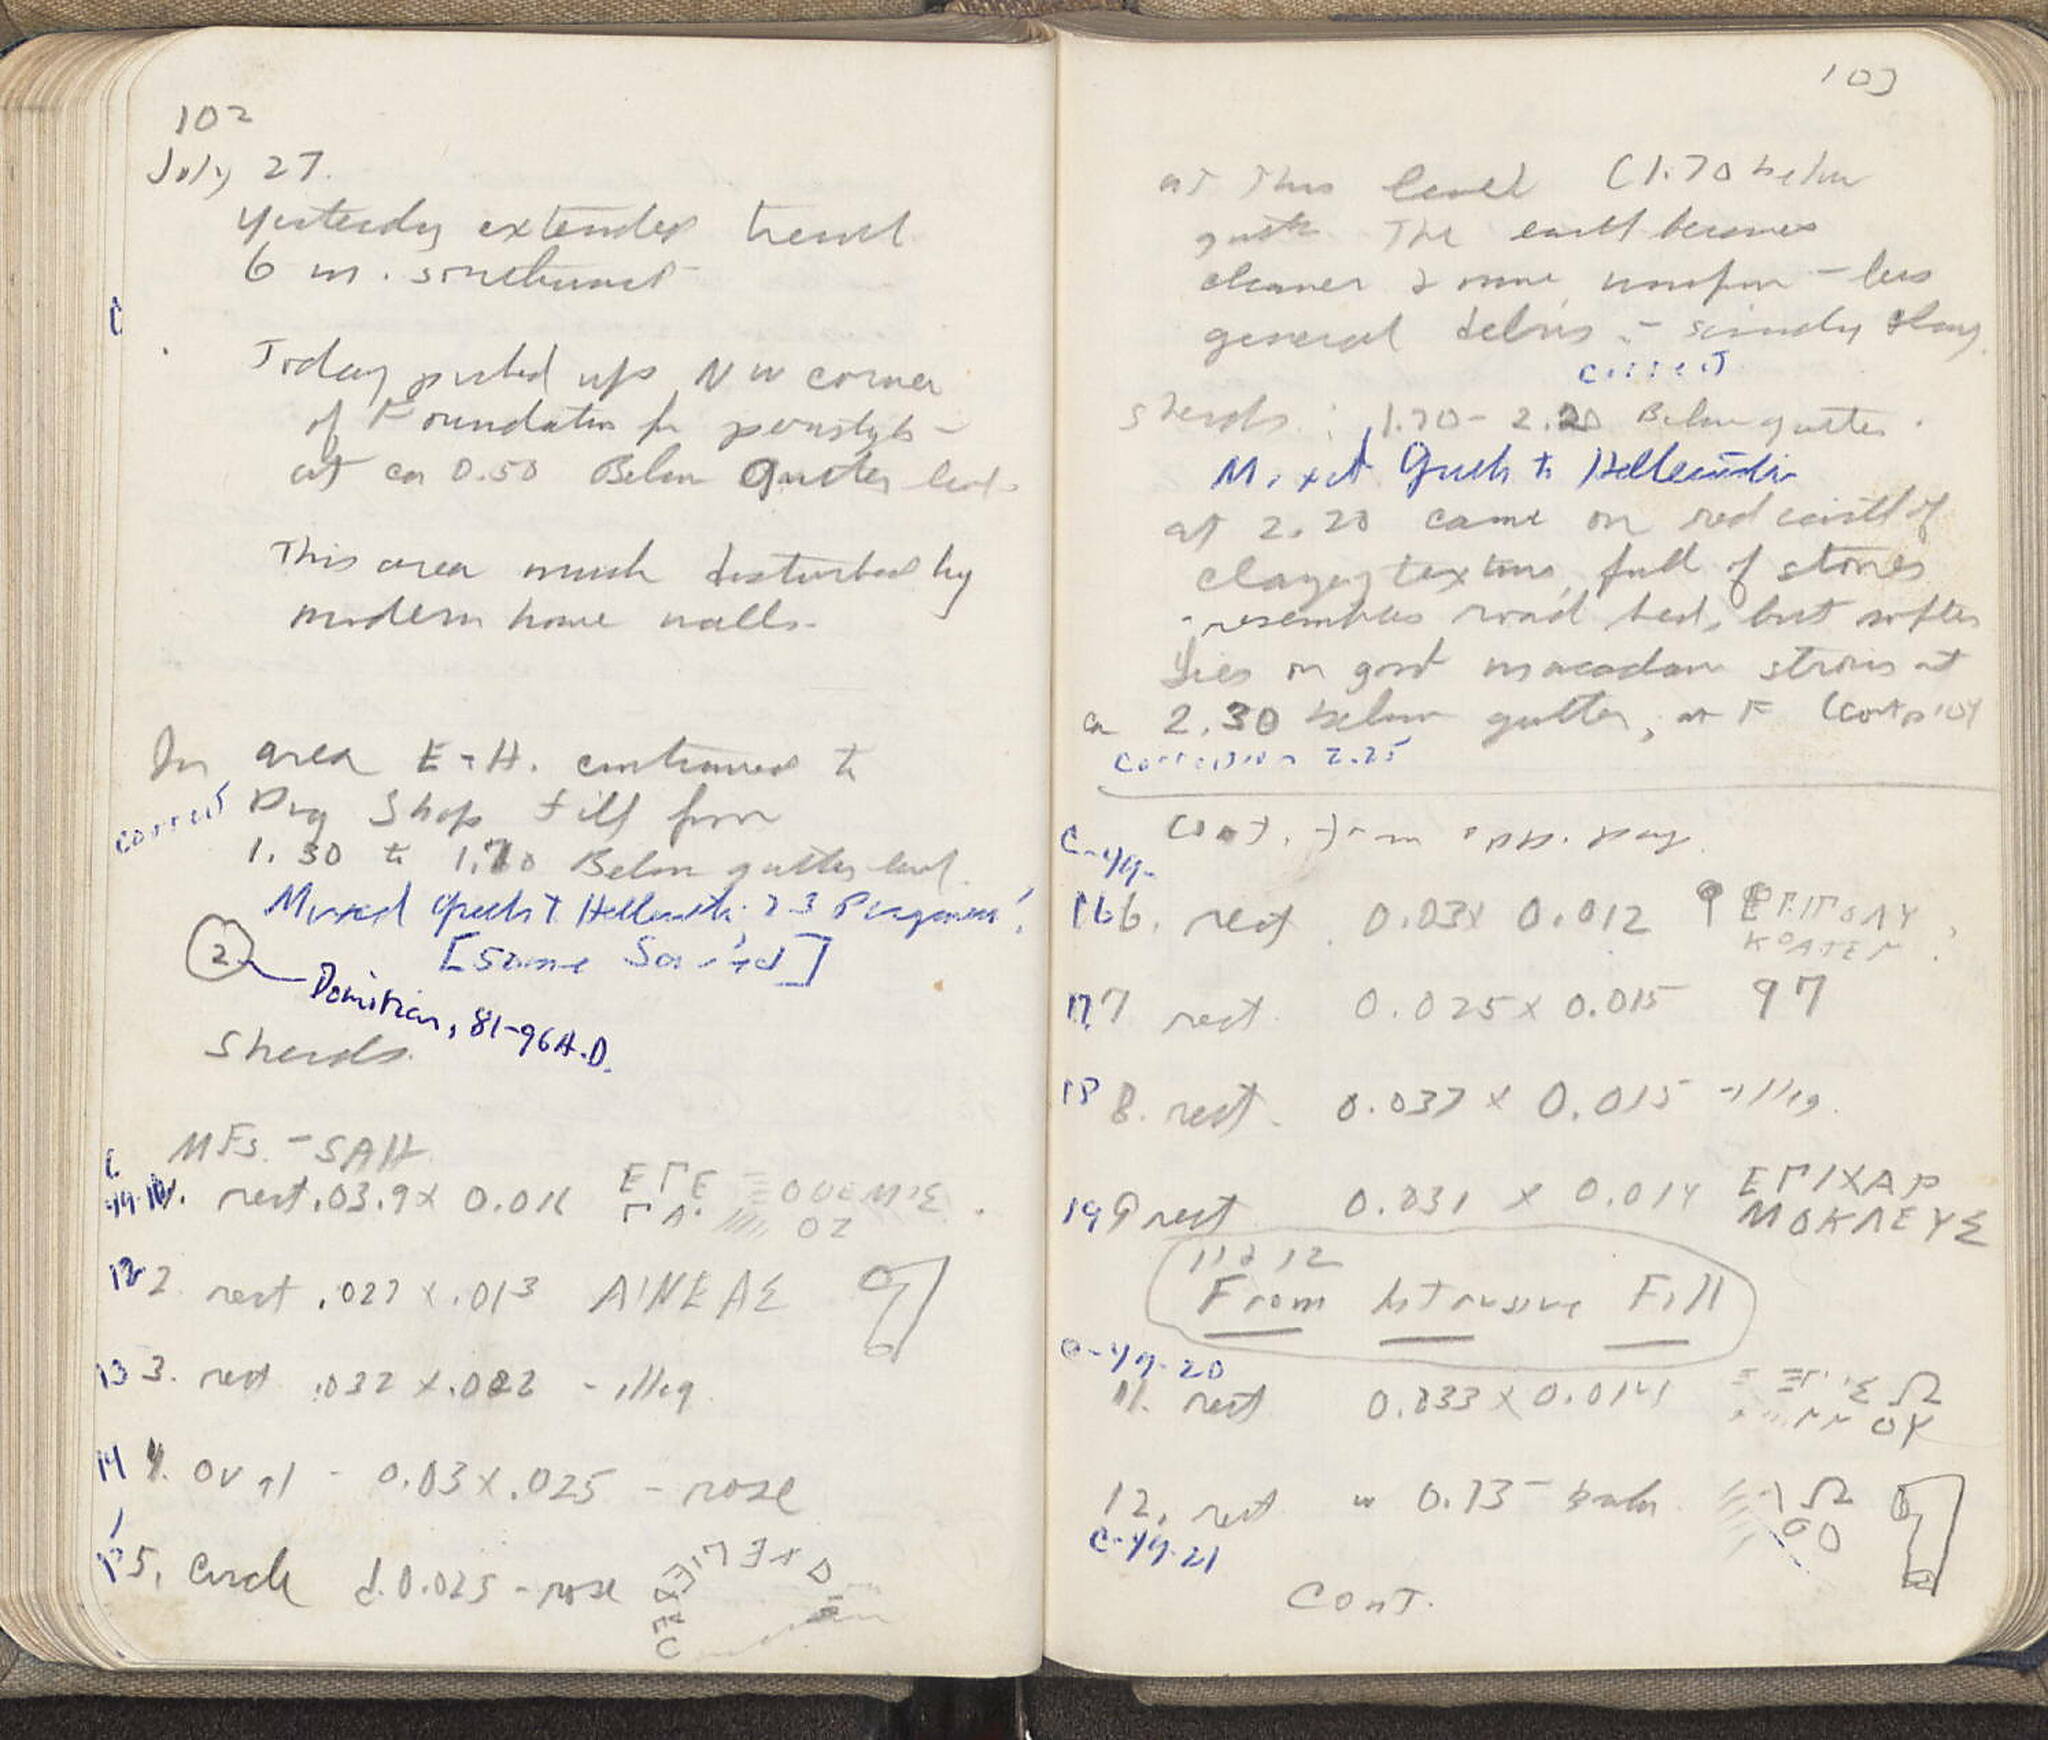 102
July 27.
Yesterday extended trench
6 m. southward
Today picked up NW corner
of Foundation for peristyle -
at ca 0.50 Below Gutter level
This area much disturbed by
modern house walls.
In area E-H. continued to
correct
Dig Shop Fill from
1.30 to 1.70 Below gutter level.
Mixed Greek + Hellenistic; 2-3 Pergamene!
[Some Saved]
2
Domitian, 81-96 A.D.
Sherds.
C
MFs. - SAH
rest .03.9 x 0.016 ΕΠΕ
12 2 rest .027 x .013 ΑΙΝΕΑΣ
13 3. rest .032 x .022 - illeg.
14 4. Oval - 0.03 x .025 - rose
15 5. Circle d. 0.025 - rose
103
at this level (1.70 below
gutter The earth becomes
cleaner & more uniform - less
general debris - simply
correct
Sherds : 1.70 - 2.20 Below gutter.
Mixed Greek to Hellenistic
at 2.20 came on red earth of
clayey texture, full of stones
- resembles road bed, but softer
Lies on good macadam strosis at
ca 2.30 below gutter, at F (cont p 104
correction 2.25
Cont. from opp. page.
C-49-
16 6. rest 0.03 x 0.012
17 7 rest 0.025 x 0.015 97
18 8. rest. 0.037 x 0.015 - illeg.
19 9 rest 0.031 x 0.014 ΕΠΙΧΑΡ
ΜΟΚΛΕΥΣ
11 & 12
From Intrusive Fill
C-49-20
11. rest 0.033 x 0.014
12. rest w 0.13 - broken
C-49-21
Cont.